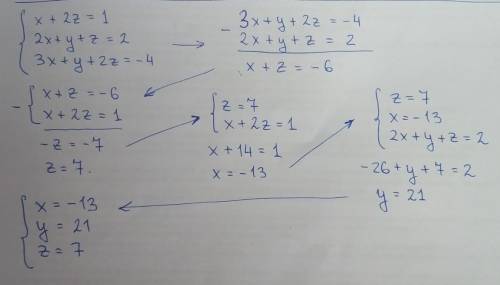 x + 2z = 1
2x + y + z = 2
3x + y + 2z = -4
3x + y + 2z = -4
2x + y + z = 2
x + z = -6
x + z = -6
x + 2z = 1
-z = -7
z = 7.
z = 7
x + 2z = 1
x + 14 = 1
x = -13
z = 7
x = -13
2x + y + z = 2
-26 + y + 7 = 2
y = 21
x = -13
y = 21
z = 7